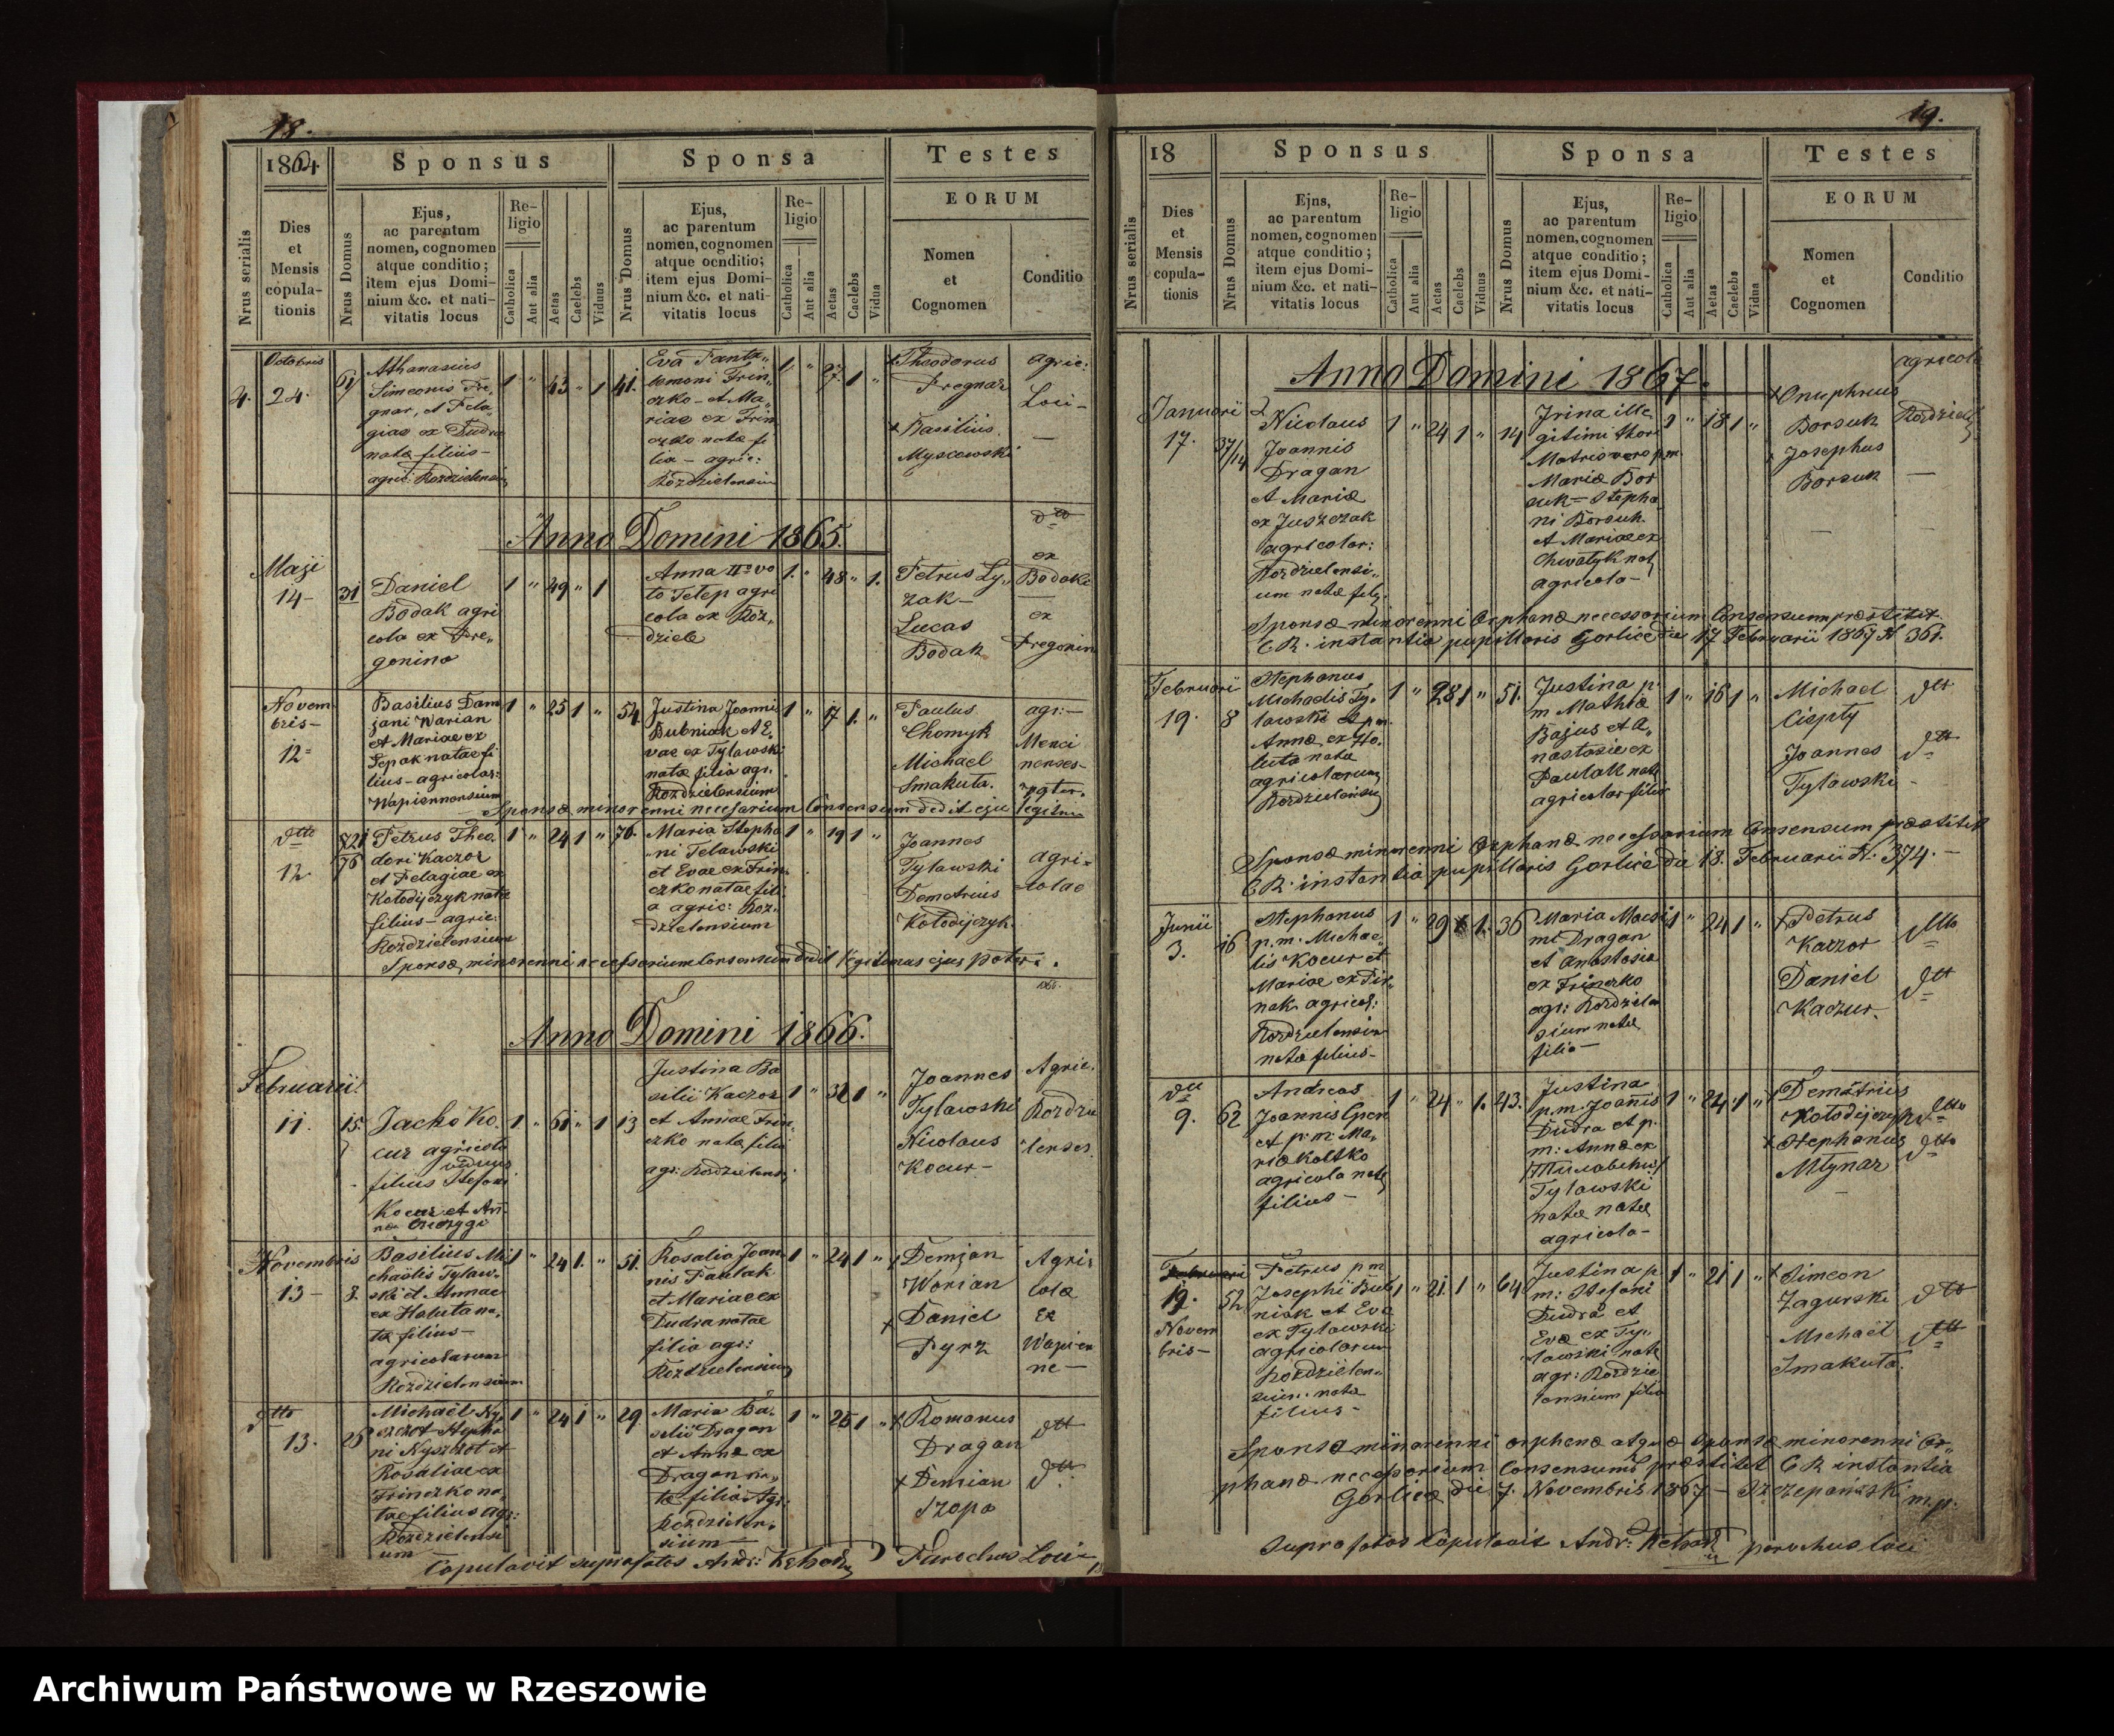 18.
1864
Sponsus
Sponsa
Testes
EORUM
Nrus serialis
Dies
et
Mensis
copula-
tionis
Nrus Domus
Ejus,
ac parentum
nomen, cognomen
atque conditio;
item ejus Domi-
nium &c. et nati-
vitatis locus
Re-
ligio
Catholica
Aut alia
Aetas
Caelebs
Viduus
Nrus Domus
Ejus,
ac parentum
nomen, cognomen
atque ocnditio;
item ejus Domi-
nium &c. et nati-
vitatis locus
Re-
ligio
Catholica
Aut alia
Aetas
Caelebs
Vidua
Nomen
et
Cognomen
Conditio
4.
Octobris
24.
Athanasius
Simeonis Fre
gnar, et Pela
giae ex Dudra
natae filius-
agric: Rozdzielensium
1 " 43 " 1
41.
Eva Pante
lemoni Frin
czko - et Ma
riae ex Frin
czko nata fi
lia - agric:
Rozdzielensium
1 " 27. 1 "
Theodorus
Fregnar
Basilius
Myscowski
agric:
Loci-
Anno Domini 1865.
dtto
Maji
14-
31
Daniel
Bodak agri
cola ex Pre
gonina
1 " 49 " 1
Anna IIdo vo
to Telep agri
cola ex Roz
dziele
1. " 48 " 1.
Petrus Ly
zak-
Lucas
Bodak
ex
Bodaki
ex
Pregonin
Novem
bris-
12
Basilius Dam
jani Warian
et Mariae ex
Sepak natae fi
lius - agricolar:
Wapiennensium
1 " 25 1 "
54
Justina Joanni
Bubniak et E
vae ex Tylawski
nata filia agr.
Rozdzielensium
1 " 17 1. "
Paulus
Chomyk
Michael
Smakuta.
agr:-
Menci
nenses-
pater.
Sponsae minorenni necessarium Consensum dedit ejus legitimus
dtto
12
72/76
Petrus Theo
dori Kaczor
et Pelagiae ex
Kołodijczyk nata
filius - agric:
Rozdzielensium
1 " 24 1 "
76.
Maria Stepha
ni Telawski
et Evae ex Frin
czko natae fili
a agric: Roz
dzielensium
1 " 19 1 "
Joannes
Tylawski
Demetrius
Kołodijczyk.
agri=
colae
Sponsae minorenni necessarium Consensum dedit legitimus ejus pater.
Anno Domini 1866.
Februarii
11.
15.
Jacko Ko
cur agricola
viduus
filius Stefani
Kocur et An
1 " 61 " 1
13
Justina Ba
silii Kaczor
et Annae Frin
czko nata filia
agr: Rozdzielensi
1 " 32 1 "
Joannes
Tylawski
Nicolaus
Kocur-
Agric.
Rozdzie
lenses.
Novembris
13-
8.
Basilius Mi
chaëlis Tylaw
ski et Annae
ex Haluta na
ta filius-
agricolarum
Rozdzielensium
1 " 24 1. "
51.
Rosalia Joan
nis Paulak
et Mariae ex
Dudra natae
filia agr:
Rozdzielensium
1 " 24 1 "
Demjan
Worian
Daniel
Pyrz
Agri
colae
Ex
Wapien
ne-
dtto
13.
26
Michaël Ny
szczot Stepha
ni Nyszczot et
Rosaliae ex
Frinczko na
tae filius agr:
Rozdzielensi
um
1 " 24 1 "
29
Maria Ba
silii Dragan
et Annae ex
Dragan na
ta filia Agr:
Rozdzielen
sium
1 " 25 1 "
Romanus
Dragan
Demian
Szopa
dtt
dtt
Copulavit suprafatos Andr: Parochus Loci
19.
18
Sponsus
Sponsa
Testes
EORUM
Nrus serialis
Dies
et
Mensis
copula-
tionis
Nrus Domus
Ejus,
ac parentum
nomen, cognomen
atque conditio;
item ejus Domi-
nium &c. et nati-
vitatis locus
Re-
ligio
Catholica
Aut alia
Aetas
Caelebs
Viduus
Nrus Domus
Ejus,
ac parentum
nomen, cognomen
atque conditio;
item ejus Domi-
nium &c. et nati-
vitatis locus
Re-
ligio
Catholica
Aut alia
Aetas
Caelebs
Vidua
Nomen
et
Cognomen
Conditio
Anno Domini 1867.
Januarii
17.
37/14
Nicolaus
Joannis
Dragan
et Mariae
ex Juszczak
agricolar:
Rozdzielensi
um natae
1 " 24 1 "
14
Irina ille
gitimi thori
Matris vero p.m.
Mariae Bor
suk - Stepha
ni Borsuk
et Mariae ex
Chwatyk nat
agricola-
1 " 18 1 "
Onuphrius
Borsuk
Josephus
Borsuk
agricola
Sponsae minorenni Orphanae necessarium Consensum praestitit
C. R. instantia pupillaris Gorlice die 17 Februarii 1867 N 361.
Februarii
19.
8
Stephanus
Michaelis Ty
lawski et p.m.
Annae ex Ha
luta natae
agricolarum
Rozdzielensium
1 " 28 1 "
51.
Justina p.
m Mathiae
Bajus et A
nastasiae ex
Paulak nat
agricolar filia
1 " 16 1 "
Michael
Ciepty
Joannes
Tylawski
dtt
dtt
Sponsae minorenni Orphanae necessarium Consensum praestitit
C. R. instantia pupillaris Gorlice die 18. Februarii N: 374.-
Junii
3.
16
Stephanus
p.m. Michae
lis Kocur et
Mariae ex Pir
nak agricol:
Rozdzielensium
natae filius-
1 " 29 1.
36
Maria Maxi
mi Dragan
et Anastasia
ex Frinczko
agr: Rozdziele
sium natae
filia-
1 " 24 1 "
Petrus
Kaczor
Daniel
Kaczur-
dtto
dtt
dtt
9.
62
Andreas
Joannis
et p.m. Ma
ria
agricola nat
filius-
1 " 24 " 1.
43.
Justina
p.m. Joannis
Dudra et p.
m: Annae ex
Tylawski
natae natae
agricola-
1 " 24 1 "
Demetrius
Kołodijczyk
Stephanus
Młynar
dtto
dtto
19.
Novem
bris-
52
Petrus p.m.
Josephi Bub
niak et Eva
ex Tylawski
agricolarum
Rozdzielen
sium. natae
filius-
1 " 21. 1 "
64
Justina p.
m: Stefani
Dudra et
Evae ex Ty
lawski nat
agr: Rozdzie
lensium filia
1 " 21 1 "
Simeon
Zagurski
Michaël
Smakuta.
dtto
dtt
Sponso minorenni orphano atque Sponsae minorenni Or
phanae necessarium Consensum praestitit C R instantia
Gorlice die 7. Novembris 1867 - Szczepański m.p.
Suprafatos Copulavit Andr: parochus loci
Archiwum Państwowe w Rzeszowie